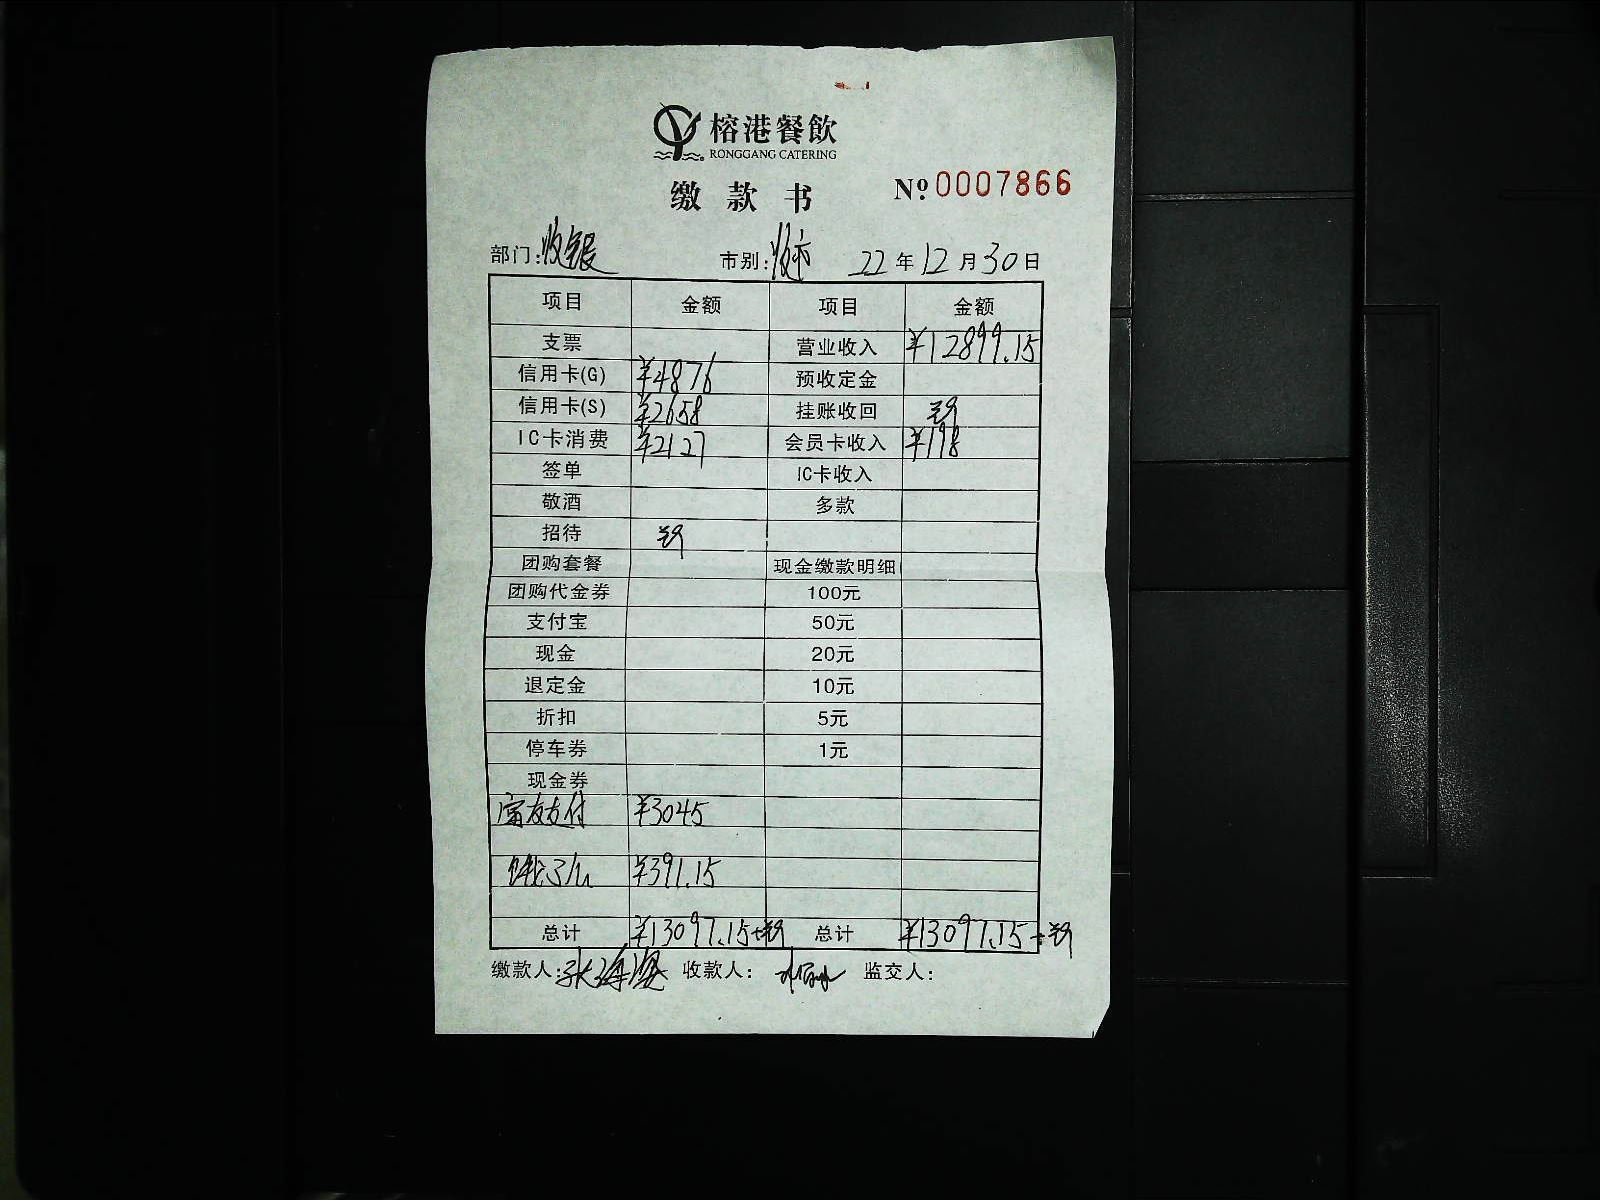 榕港餐飲
RONGGANG CATERING
缴款书 №0007866
部门:收银 市别: 22年12月30日
项目 金额 项目 金额
支票 营业收入 ¥12899.15
信用卡(G) ¥4876 预收定金
信用卡(S) ¥2658 挂账收回
IC卡消费 ¥2127 会员卡收入 ¥198
签单 IC卡收入
敬酒 多款
招待
团购套餐 现金缴款明细
团购代金券 100元
支付宝 50元
现金 20元
退定金 10元
折扣 5元
停车券 1元
现金券
富友支付 ¥3045
饿了么 ¥391.15
总计 ¥13097.15 总计 ¥13097.15
缴款人:张海 收款人: 监交人: